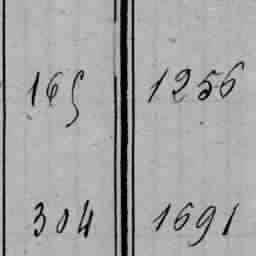 165 1256
304 1691